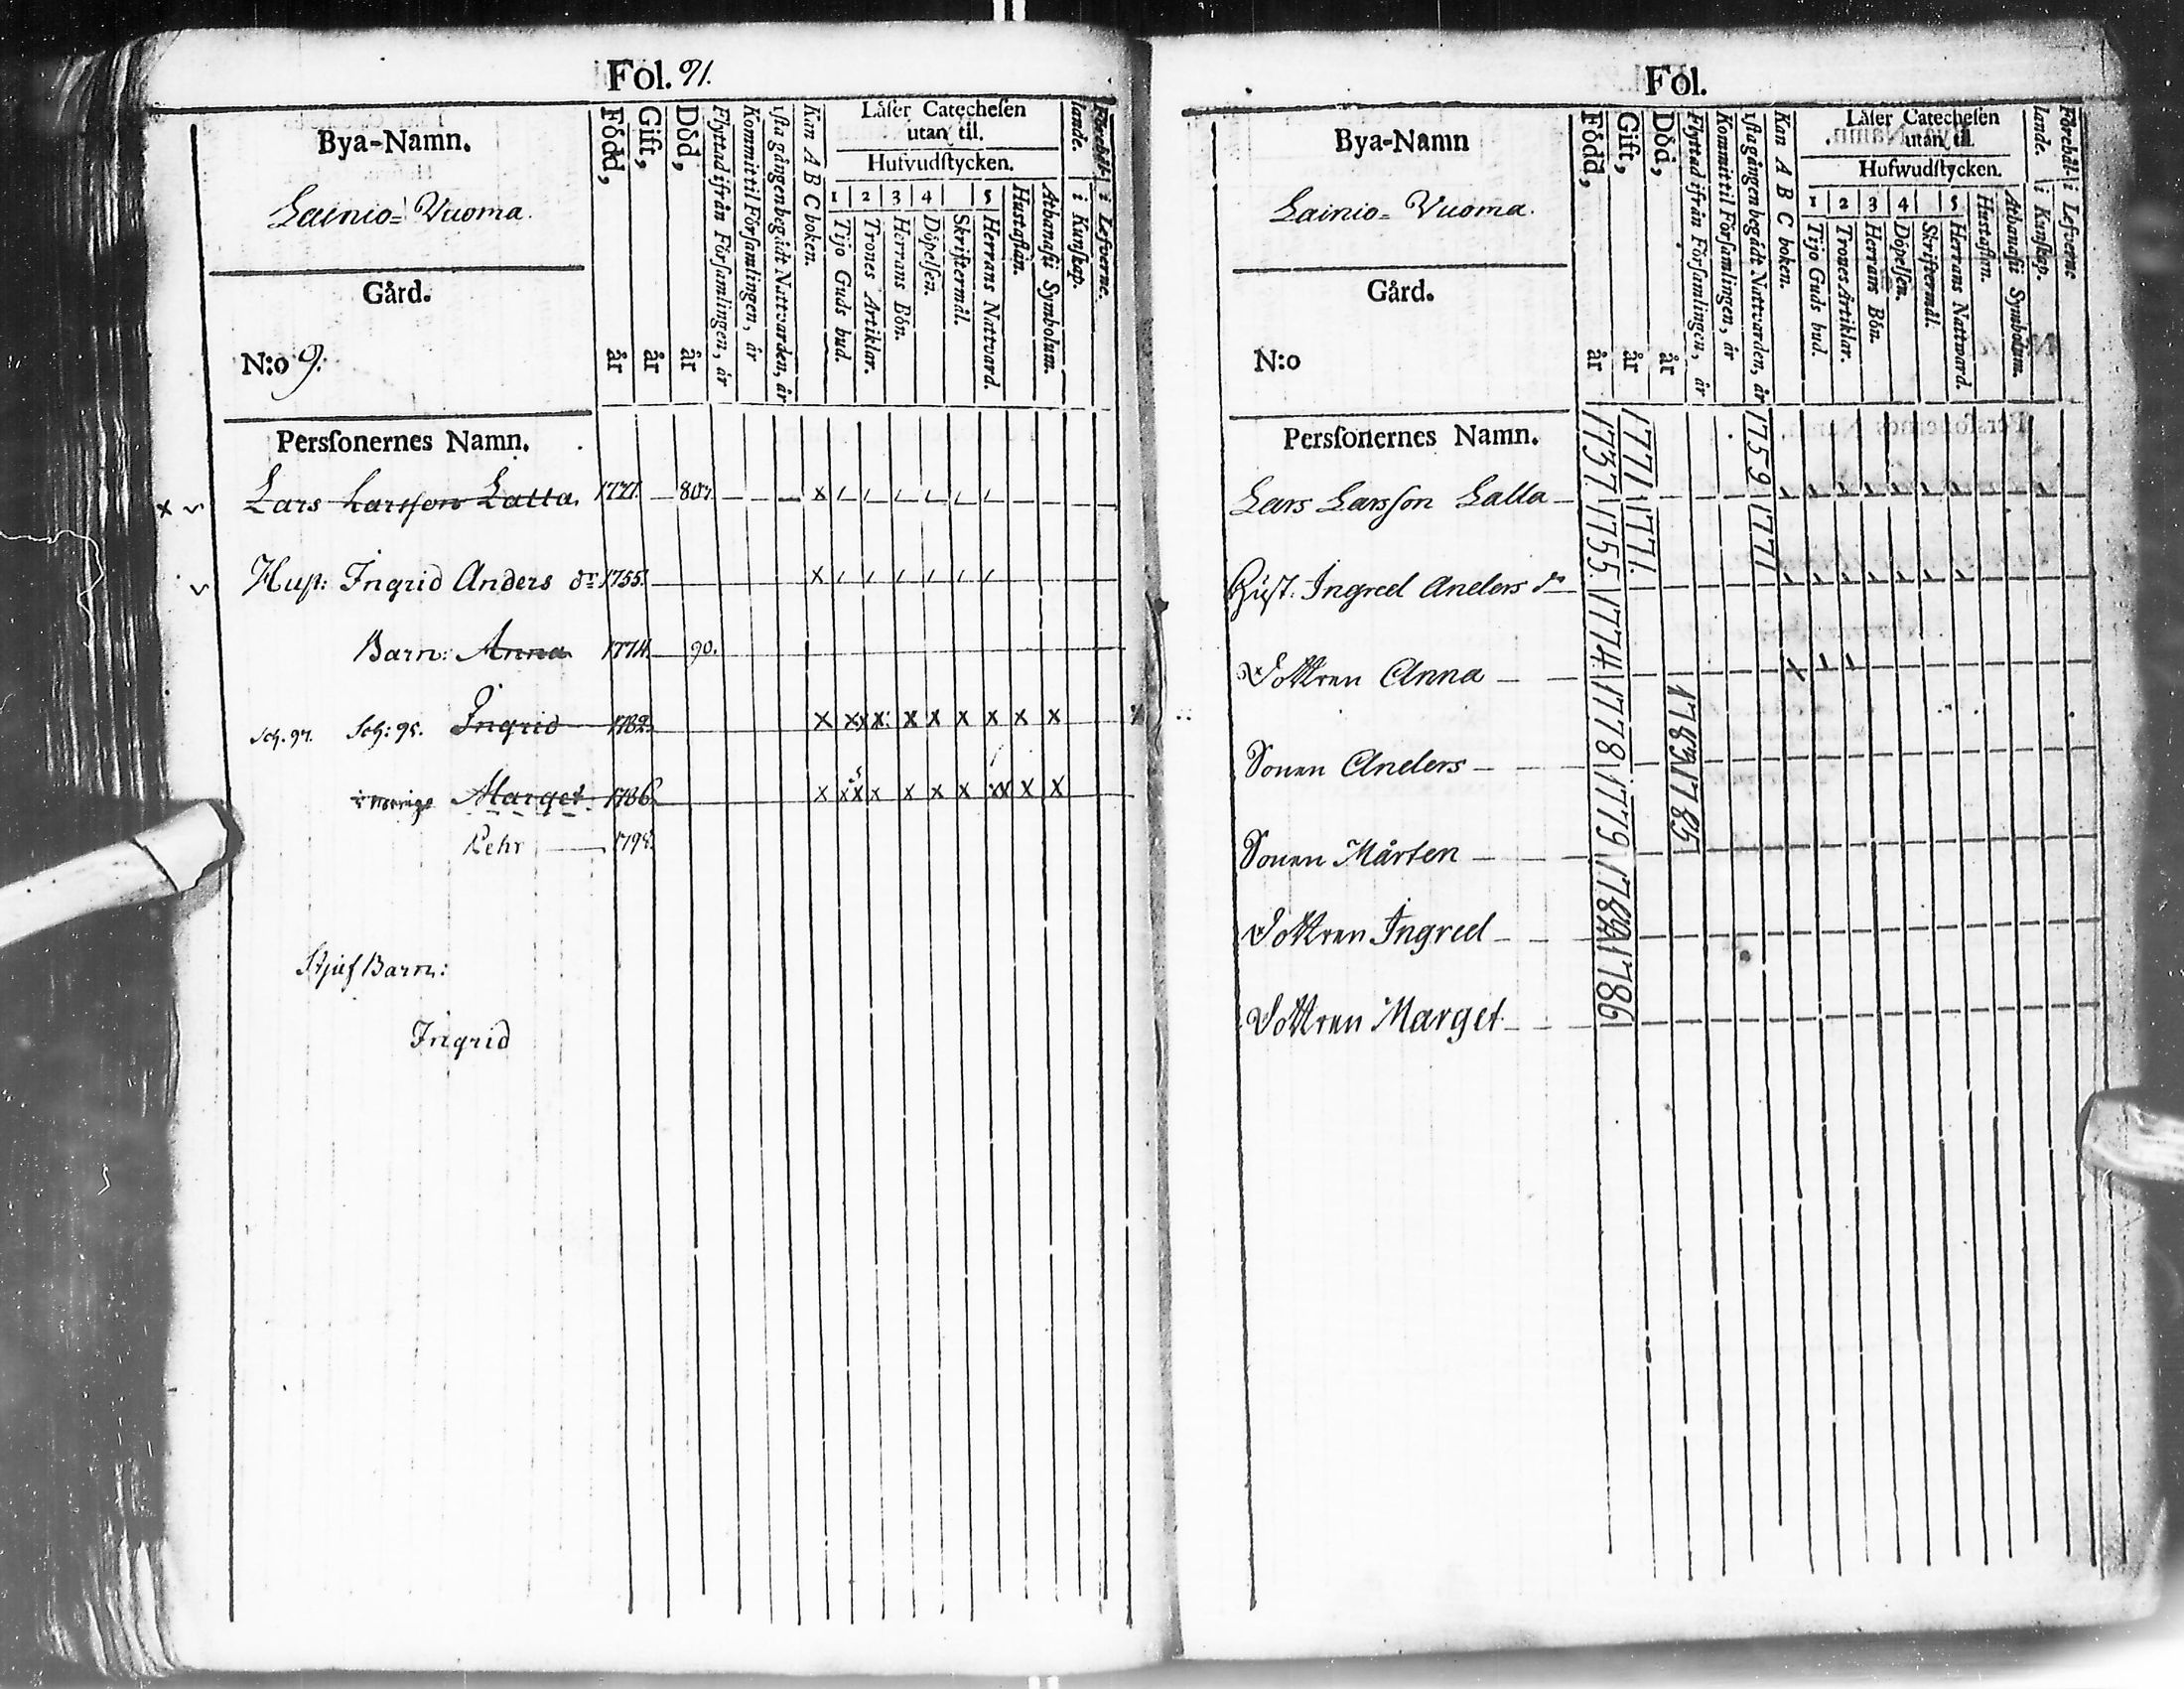 Fol. 91.
Bya-Namn.
Lainio= Vuoma.
Gård.
N:o 9.
Persſonernes Namn.
Född, år
Gift, år
Död, år
Flyttad ifrån Församlingen, år
Kommit til Församlingen, år
1sta gången begådt Nattvarden, år
Kan A B C boken.
Läſer Catecheſen
utan til.
Hufvudſtycken.
1 2 3 4 5
Tijo Guds bud.
Trones Artiklar.
Herrans Bön.
Döpelſen.
Skriftermål.
Herrans Nattvard.
Huſtaflan.
Athanaſii Symbolum.
Förehållande.
i Kunſkap.
i Lefverne.
Lars Larsson Lalla. 1737. 807. x
Hust: Ingrid Anders dr 1755. x
Barn: Anna 1774. 90.
Sch. 97. Sch: 95. Ingrid 1782. x xx x x x x x x x
Marget 1786. x xx x x x x xx x x
Pehr 1795.
Stjuf Barn:
Ingrid
Fol.
Bya-Namn
Lainio= Vuoma.
Gård.
N:o
Persſonernes Namn.
Född, år
Gift, år
Död, år
Flyttad ifrån Församlingen, år
Kommit til Församlingen, år
1sta gången begådt Nattvarden, år
Kan A B C boken.
Läſer Catecheſen
utan til.
Hufwudſtycken.
1 2 3 4 5
Tijo Guds bud.
Trones Artiklar.
Herrans Bön.
Döpelſen.
Skriftermål.
Herrans Natward.
Huſtaflan.
Athanaſii Symbolum.
Förehållande.
i Kunſkap.
i Lefverne
Lars Larsson Lalla 1737 1771 1759
Hust. Ingred Anders dr 1755. 1771. 1771
Dottren Anna 1774 x
Sonen Anders 1778 1783
Sonen Mårten 1779 1785
Dottren Ingred 1782
Dottren Marget 1786